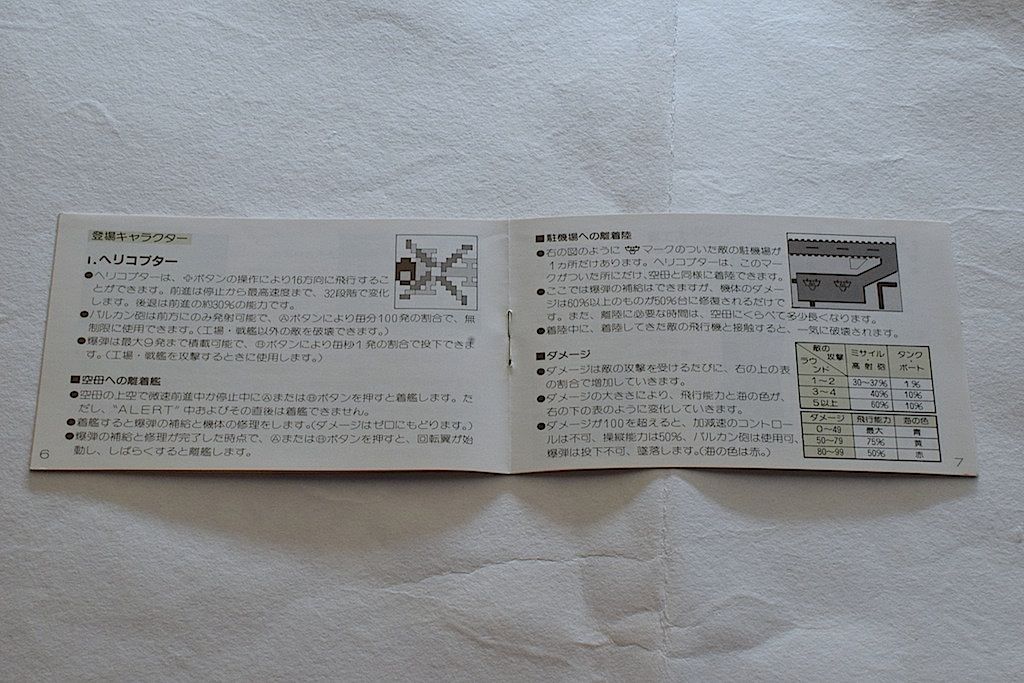 登場キャラクター
1.ヘリコプター
●ヘリコプターは、✥ボタンの操作により16方向に飛行するこ
とができます。前進は停止から最高速度まで、32段階で変化
します。後退は前進の約30%の能力です。
●バルカン砲は前方にのみ発射可能で、Ⓐボタンにより毎分100発の割合で、無
制限に使用できます。(工場・戦艦以外の敵を破壊できます。)
●爆弾は最大9発まで積載可能で、Ⓑボタンにより毎秒1発の割合で投下できま
す。(工場・戦艦を攻撃するときに使用します。)
■空母への離着艦
●空母の上空で微速前進中か停止中にⒶまたはⒷボタンを押すと着艦します。た
だし、"ALERT"中およびその直後は着艦できません。
●着艦すると爆弾の補給と機体の修理をします。(ダメージはゼロにもどります。)
●爆弾の補給と修理が完了した時点で、ⒶまたはⒷボタンを押すと、回転翼が始
動し、しばらくすると離艦します。
6
■駐機場への離着陸
●右の図のように マークのついた敵の駐機場が
1ヵ所だけあります。ヘリコプターは、このマー
クがついた所にだけ、空母と同様に着陸できます。
●ここでは爆弾の補給はできますが、機体のダメー
ジは60%以上のものが50%台に修復されるだけで
す。また、離陸に必要な時間は、空母にくらべて多少長くなります。
●着陸中に、着陸してきた敵の飛行機と接触すると、一気に破壊されます。
■ダメージ
●ダメージは敵の攻撃を受けるたびに、右の上の表
の割合で増加していきます。
●ダメージの大きさにより、飛行能力と海の色が、
右の下の表のように変化していきます。
●ダメージが100を超えると、加減速のコントロー
ルは不可、操縦能力は50%、バルカン砲は使用可、
爆弾は投下不可、墜落します。(海の色は赤。)
敵の攻撃 ラウンド ミサイル 高射砲 タンク・ボート
1〜2 30〜37% 1%
3〜4 40% 10%
5以上 60% 10%
ダメージ 飛行能力 海の色
0〜49 最大 青
50〜79 75% 黄
80〜99 50% 赤
7